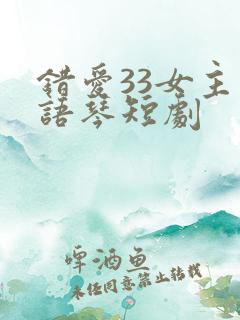 錯愛33女主
語琴短劇
啤酒鱼
未经同意禁止转载